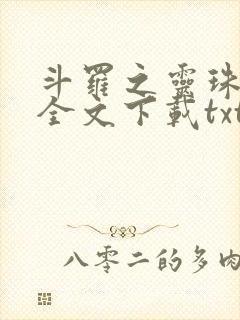 斗罗之靈珠
全文下载txt
八零二的多肉